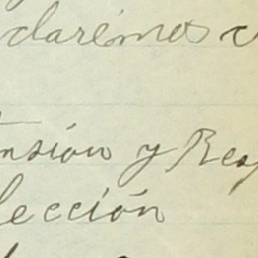 daremos
nsión y Res
lección